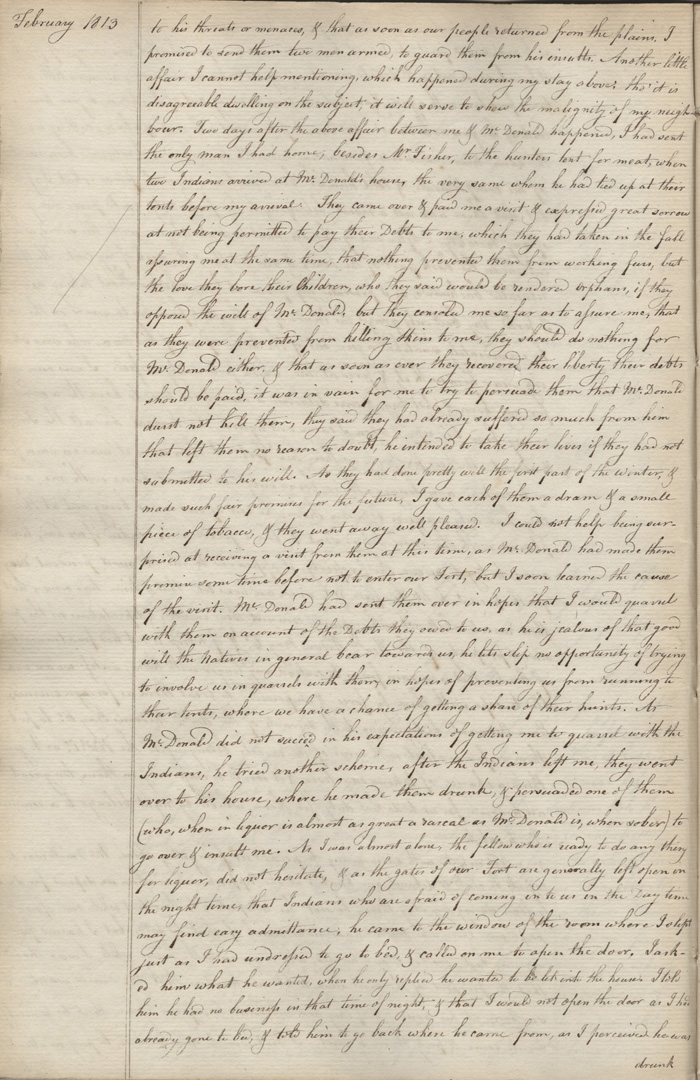 February 1813
to his threats or menaces, & that as soon as our people returned from the plains, I
promised to send them two men armed, to guard them from his insults. Another little
affair I cannot help mentioning, which happened during my stay above; tho' it is
disagreeable dwelling on the subject, it will serve to shew the malignity of my neigh-
bour. Two days after the above affair between me & Mr. Donald happened, I had sent
the only man I had home, besides Mr Fisher, to the hunters tent for meat, when
two Indians arrived at Mc. Donald's house, the very same whom he had tied up at their
tents before my arrival. They came over & paid me a visit & expressed great sorrow
at not being permitted to pay their Debts to me, which they had taken in the fall
assuring me at the same time, that nothing prevented them from working furs, but
the love they bore their Children, who they said would be rendered orphans, if they
opposed the will of Mc. Donald, but they consoled me so far as to assure me, that
as they were prevented from killing skins to me, they should do nothing for
Mc. Donald either, & that as soon as ever they recovered their liberty, their debts
should be paid, it was in vain for me to try to persuade them that Mc. Donald
durst not kill them, they said they had already suffered so much from him
that left them no reason to doubt, he intended to take their lives if they had not
submitted to his will. As they had done pretty well the first part of the winter, &
made such fair promises for the future, I gave each of them a dram & a small
piece of tobacco, & they went away well pleased. I could not help being sur-
prised at receiving a visit from them at this time, as Mc. Donald had made them
promise some time before not to enter our Fort, but I soon learned the cause
of the visit. Mc. Donald had sent them over in hopes that I would quarrel
with them on account of the Debts they owed to us. as he is jealous of that good
will the Natives in general bear towards us, he lets slip no opportunity of trying
to involve us in quarrels with them, in hopes of preventing us from running to
their tents, where we have a chance of getting a share of their hunts. As
Mc. Donald did not succeed in his expectations of getting me to quarrel with the
Indians, he tried another scheme, after the Indians left me, they went
over to his house, where he made them drunk, & persuaded one of them
(who, when in liquor is almost as great a rascal as Mc. Donald is, when sober) to
go over & insult me. As I was almost alone, the fellow who is ready to do any thing
for liquor, did not hesitate, & as the gates of our Fort are generally left open in
the night time, that Indians who are afraid of coming in to us in the Day time
may find easy admittance, he came to the window of the room where I slept
just as I had undressed to go to bed, & called on me to open the door, I ask-
d him what he wanted, when he only replied he wanted to be let into the house. I told
him he had no business in that time of night, & that I would not open the door as I had
already gone to bed, & told him to go back where he came from, as I perceived he was
drunk